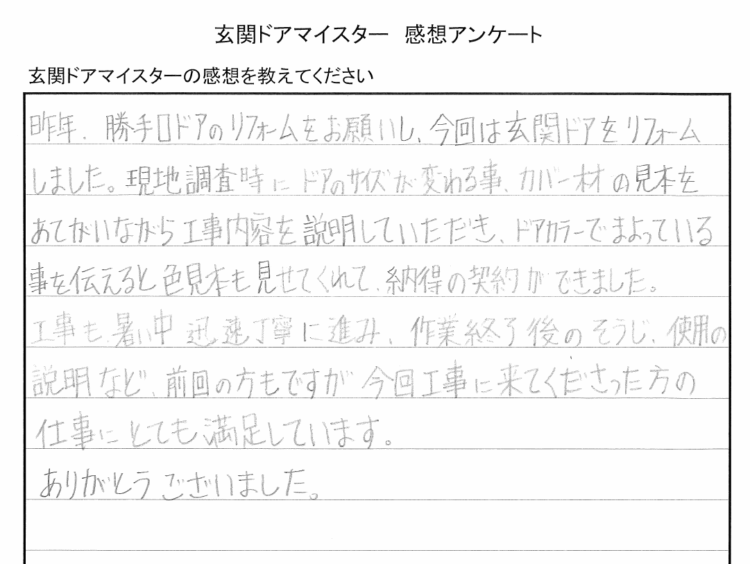 玄関ドアマイスター 感想アンケート
玄関ドアマイスターの感想を教えてください
昨年、勝手口ドアのリフォームをお願いし、今回は玄関ドアをリフォーム
しました。現地調査時にドアのサイズが変わる事、カバー材の見本を
あてがいながら工事内容を説明していただき、ドアカラーでまよっている
事を伝えると色見本も見せてくれて、納得の契約ができました。
工事も、暑い中迅速丁寧に進み、作業終了後のそうじ、使用の
説明など、前回の方もですが今回工事に来てくださった方の
仕事にとても満足しています。
ありがとうございました。